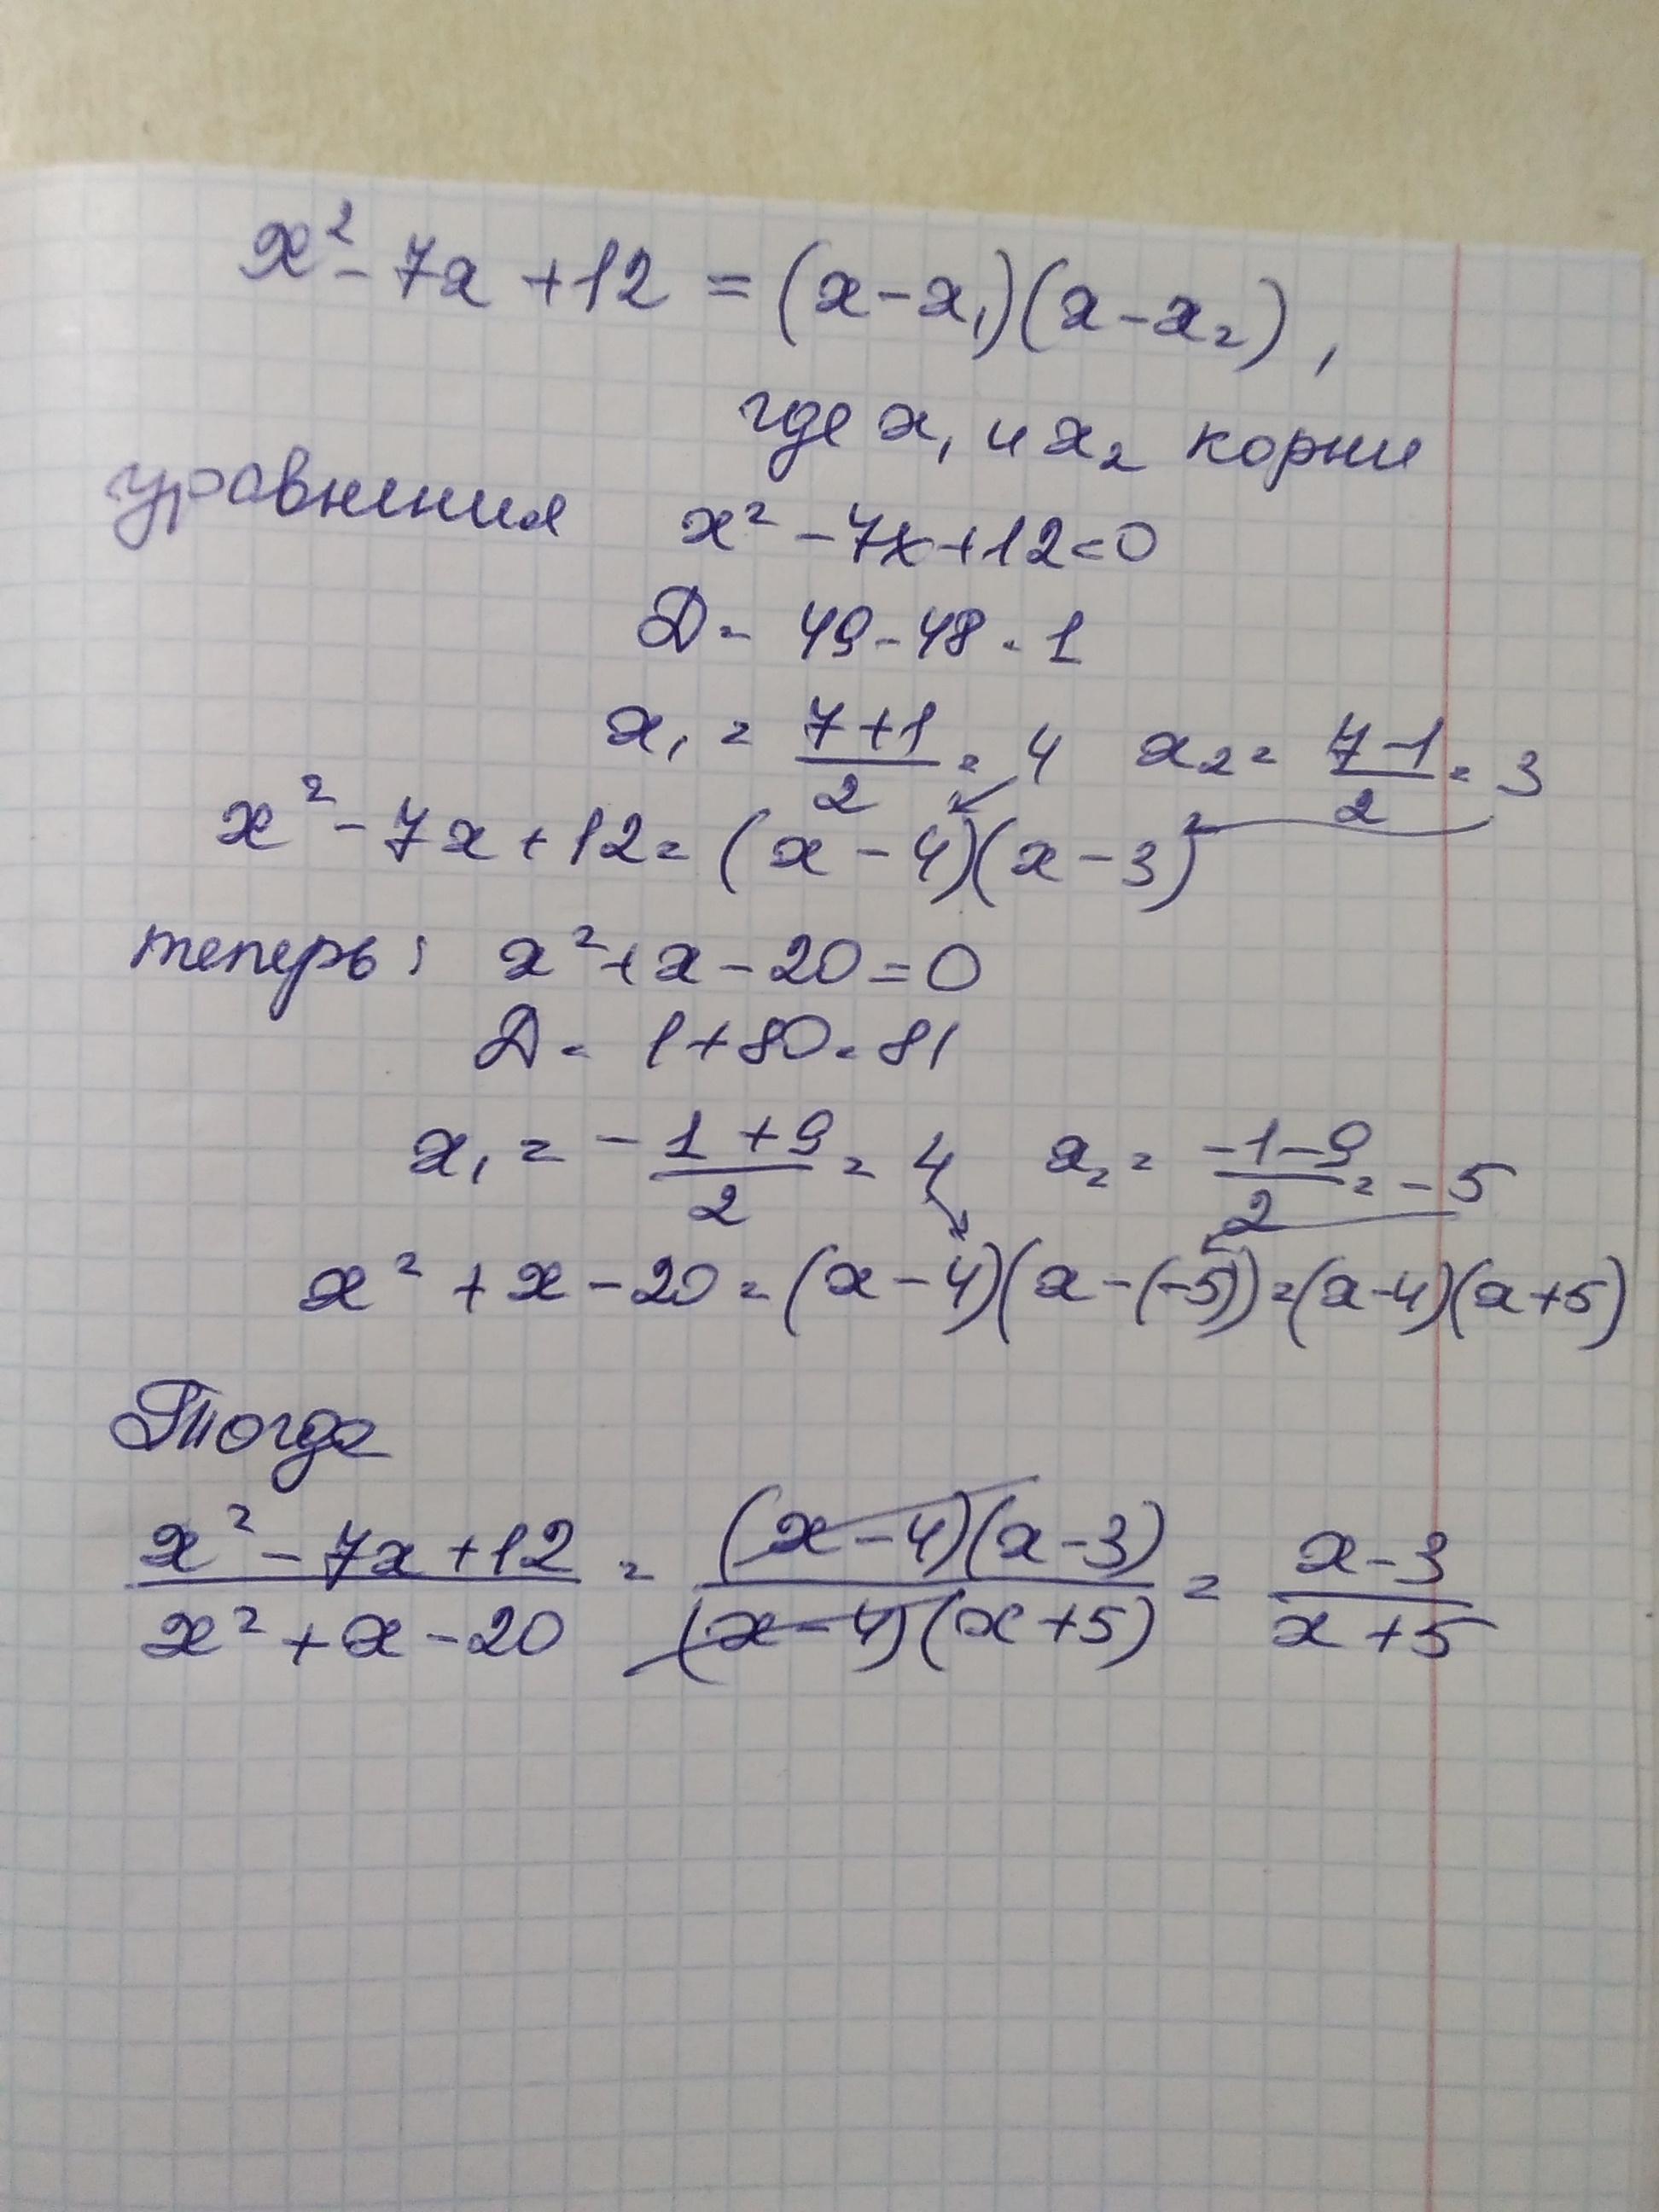 x² - 7x + 12 = (x - x₁)(x - x₂),
где x₁ и x₂ корни
уравнения x² - 7x + 12 = 0
D = 49 - 48 = 1
x₁ = (7 + 1)/2 = 4 x₂ = (7 - 1)/2 = 3
x² - 7x + 12 = (x - 4)(x - 3)
теперь: x² + x - 20 = 0
D = 1 + 80 = 81
x₁ = (-1 + 9)/2 = 4 x₂ = (-1 - 9)/2 = -5
x² + x - 20 = (x - 4)(x - (-5)) = (x - 4)(x + 5)
Тогда
(x² - 7x + 12)/(x² + x - 20) = ((x - 4)(x - 3))/((x - 4)(x + 5)) = (x - 3)/(x + 5)